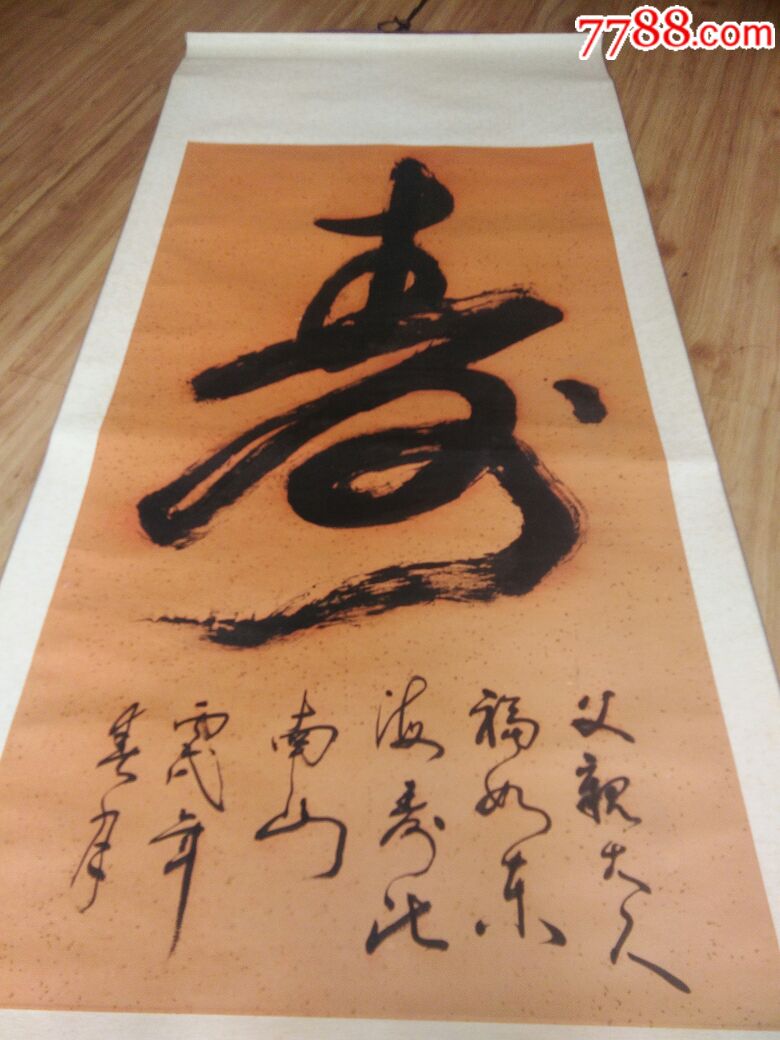 7788.com
壽
父親大人
福如东
海寿比
南山
年
春月